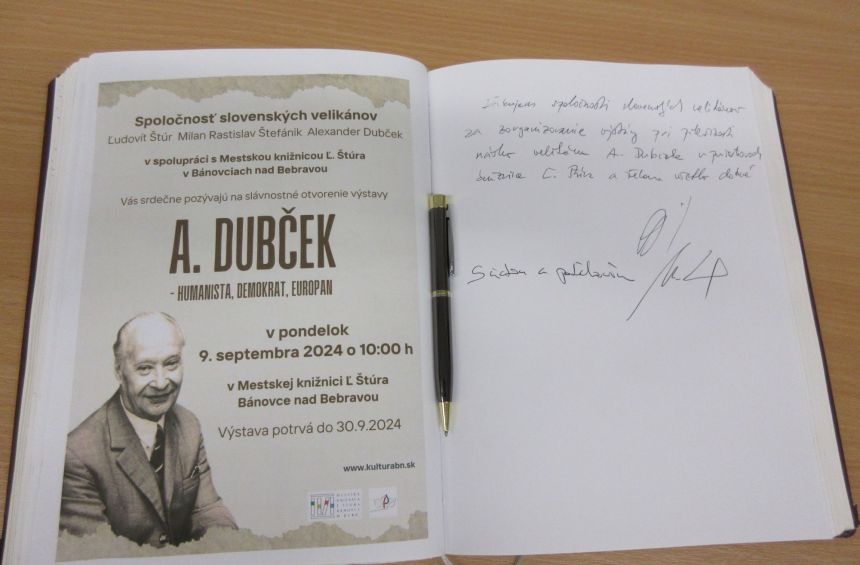 Spoločnosť slovenských velikánov
Ľudovít Štúr Milan Rastislav Štefánik Alexander Dubček
v spolupráci s Mestskou knižnicou Ľ. Štúra
v Bánovciach nad Bebravou
Vás srdečne pozývajú na slávnostné otvorenie výstavy
A. DUBČEK
- HUMANISTA, DEMOKRAT, EUROPAN
v pondelok
9. septembra 2024 o 10:00 h
v Mestskej knižnici Ľ Štúra
Bánovce nad Bebravou
Výstava potrvá do 30.9.2024
www.kulturabn.sk
MESTSKÁ
KNIŽNICA
Ľ. ŠTÚRA
spoločnosti slovenských velikánov
za zorganizovanie výstavy pri príležitosti
velikána A. Dubčeka v priestoroch
knižnice Ľ. Štúra a
S úctou a